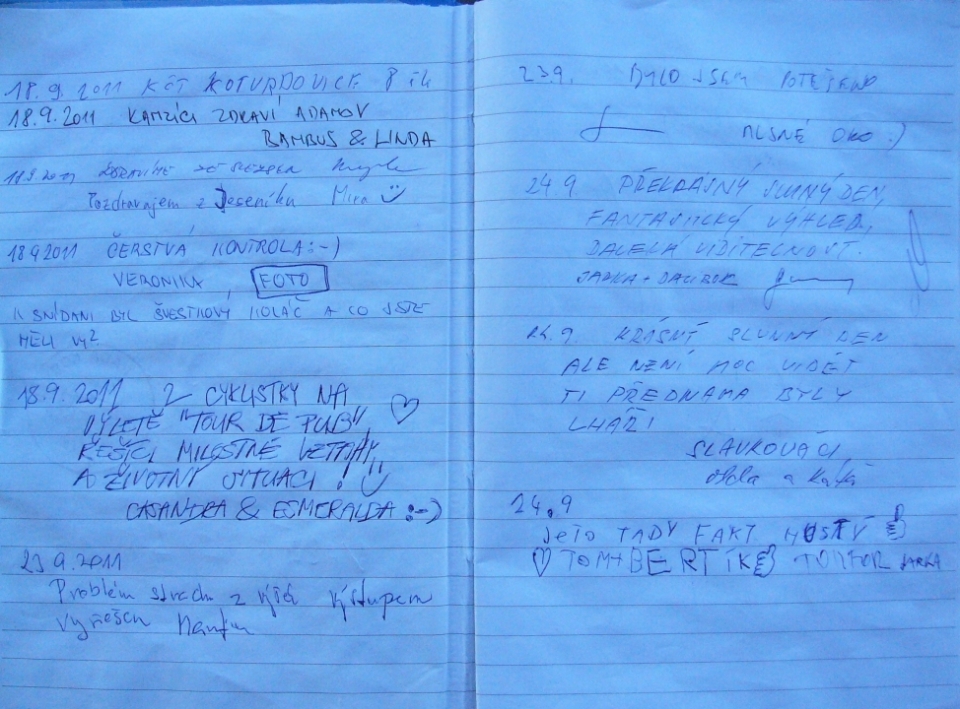 18.9.2011 KČT KOTVRDOVICE 8
18.9.2011 KAMZÍCI ZDRAVÍ ADAMOV
BAMBUS & LINDA
18.9.2011 ZDRAVÍME
Pozdravujem z Jeseníku Mira
18.9.2011 ČERSTVÁ KONTROLA:-)
VERONIKA, FOTO
K SNÍDANI BYL ŠVESTKOVÝ KOLÁČ A CO JSTE
MĚLI VY?
18.9.2011 2 CYKLISTKY NA
VÝLETĚ "TOUR DE PUB",
ŘEŠÍCÍ MILOSTNÉ VZTAHY
A ŽIVOTNÍ SITUACI!
CASANDRA & ESMERALDA :-)
23.9.2011
Problém strachu z výšek výstupem
vyřešen
23.9. BYLO POTĚŠENO
MLSNÉ OKO :)
24.9 PŘEKRÁSNÝ SLUNNÝ DEN,
FANTASTICKÝ VÝHLED,
DALEKÁ VIDITELNOST.
JARKA +
24.9. KRÁSNÝ SLUNNÝ DEN
ALE NENÍ MOC VIDĚT
TI PŘEDNAMA BYLY
LHÁŘI
SLAVKOVÁCI,
a Kája
24.9
JeTO TADY FAKT HUSTÝ
TOM+BERTÍK JARKA